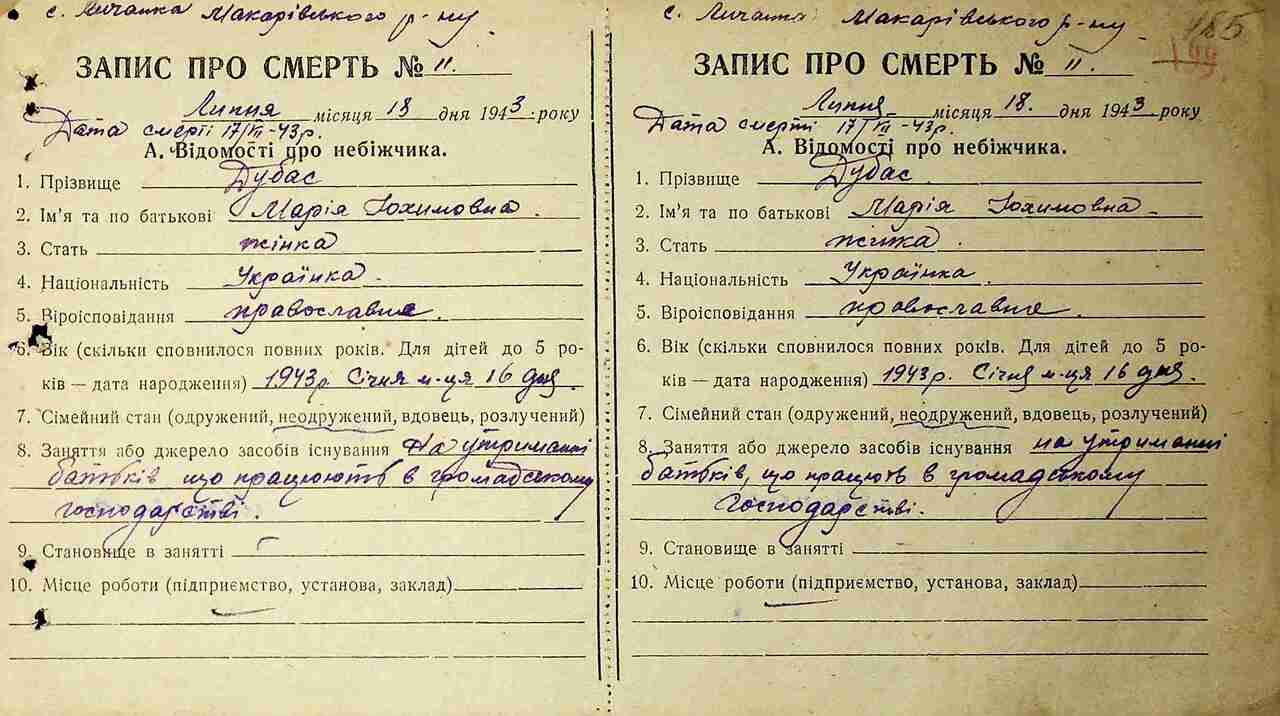 с. Личанка Макарівського р-ну
ЗАПИС ПРО СМЕРТЬ № 11.
Липня місяця 18 дня 1943 року
Дата смерті 17/VII-43р.
А. Відомості про небіжчика.
1. Прізвище Дубас
2. Ім'я та по батькові Марія Юхимовна.
3. Стать жінка
4. Національність Українка.
5. Віроісповідання православне.
6. Вік (скільки сповнилося повних років. Для дітей до 5 ро-
ків — дата народження) 1943р. Січня м-ця 16 дня.
7. Сімейний стан (одружений, неодружений, вдовець, розлучений)
8. Заняття або джерело засобів існування на утриманні
батьків що працюють в громадському
господарстві.
9. Становище в занятті
10. Місце роботи (підприємство, установа, заклад)
с. Личанка Макарівського р-ну.
199
ЗАПИС ПРО СМЕРТЬ № 11.
Липня місяця 18. дня 1943 року
Дата смерті 17/VII-43р.
А. Відомості про небіжчика.
1. Прізвище Дубас.
2. Ім'я та по батькові Марія Юхимовна.
3. Стать жінка.
4. Національність Українка
5. Віроісповідання православне.
6. Вік (скільки сповнилося повних років. Для дітей до 5 ро-
ків — дата народження) 1943р. Січня м-ця 16 дня.
7. Сімейний стан (одружений, неодружений, вдовець, розлучений)
8. Заняття або джерело засобів існування на утриманні
батьків, що працюють в громадському
господарстві.
9. Становище в занятті
10. Місце роботи (підприємство, установа, заклад)